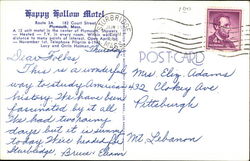 Happy Hollow Motel
Route 3A 182 Court Street
Plymouth, Mass.
A 12 unit motel in the center of Plymouth. Showers
Heated — T.V. in every room. Within walking
distance to many points of interest. Open April to
November 1st. Telephone Pilgrim
Lucy and Orrin Holman
POST CARD
Dear Folks,
This is a wonderful
way to study famous
history. We have been
fascinated by it all
We had two rainy
days but it is sunny
today. We're headed for
Sturbridge. Bruce
Mrs. Eliz. Adams
432 Clokey Ave
Pittsburgh
Mt Lebanon